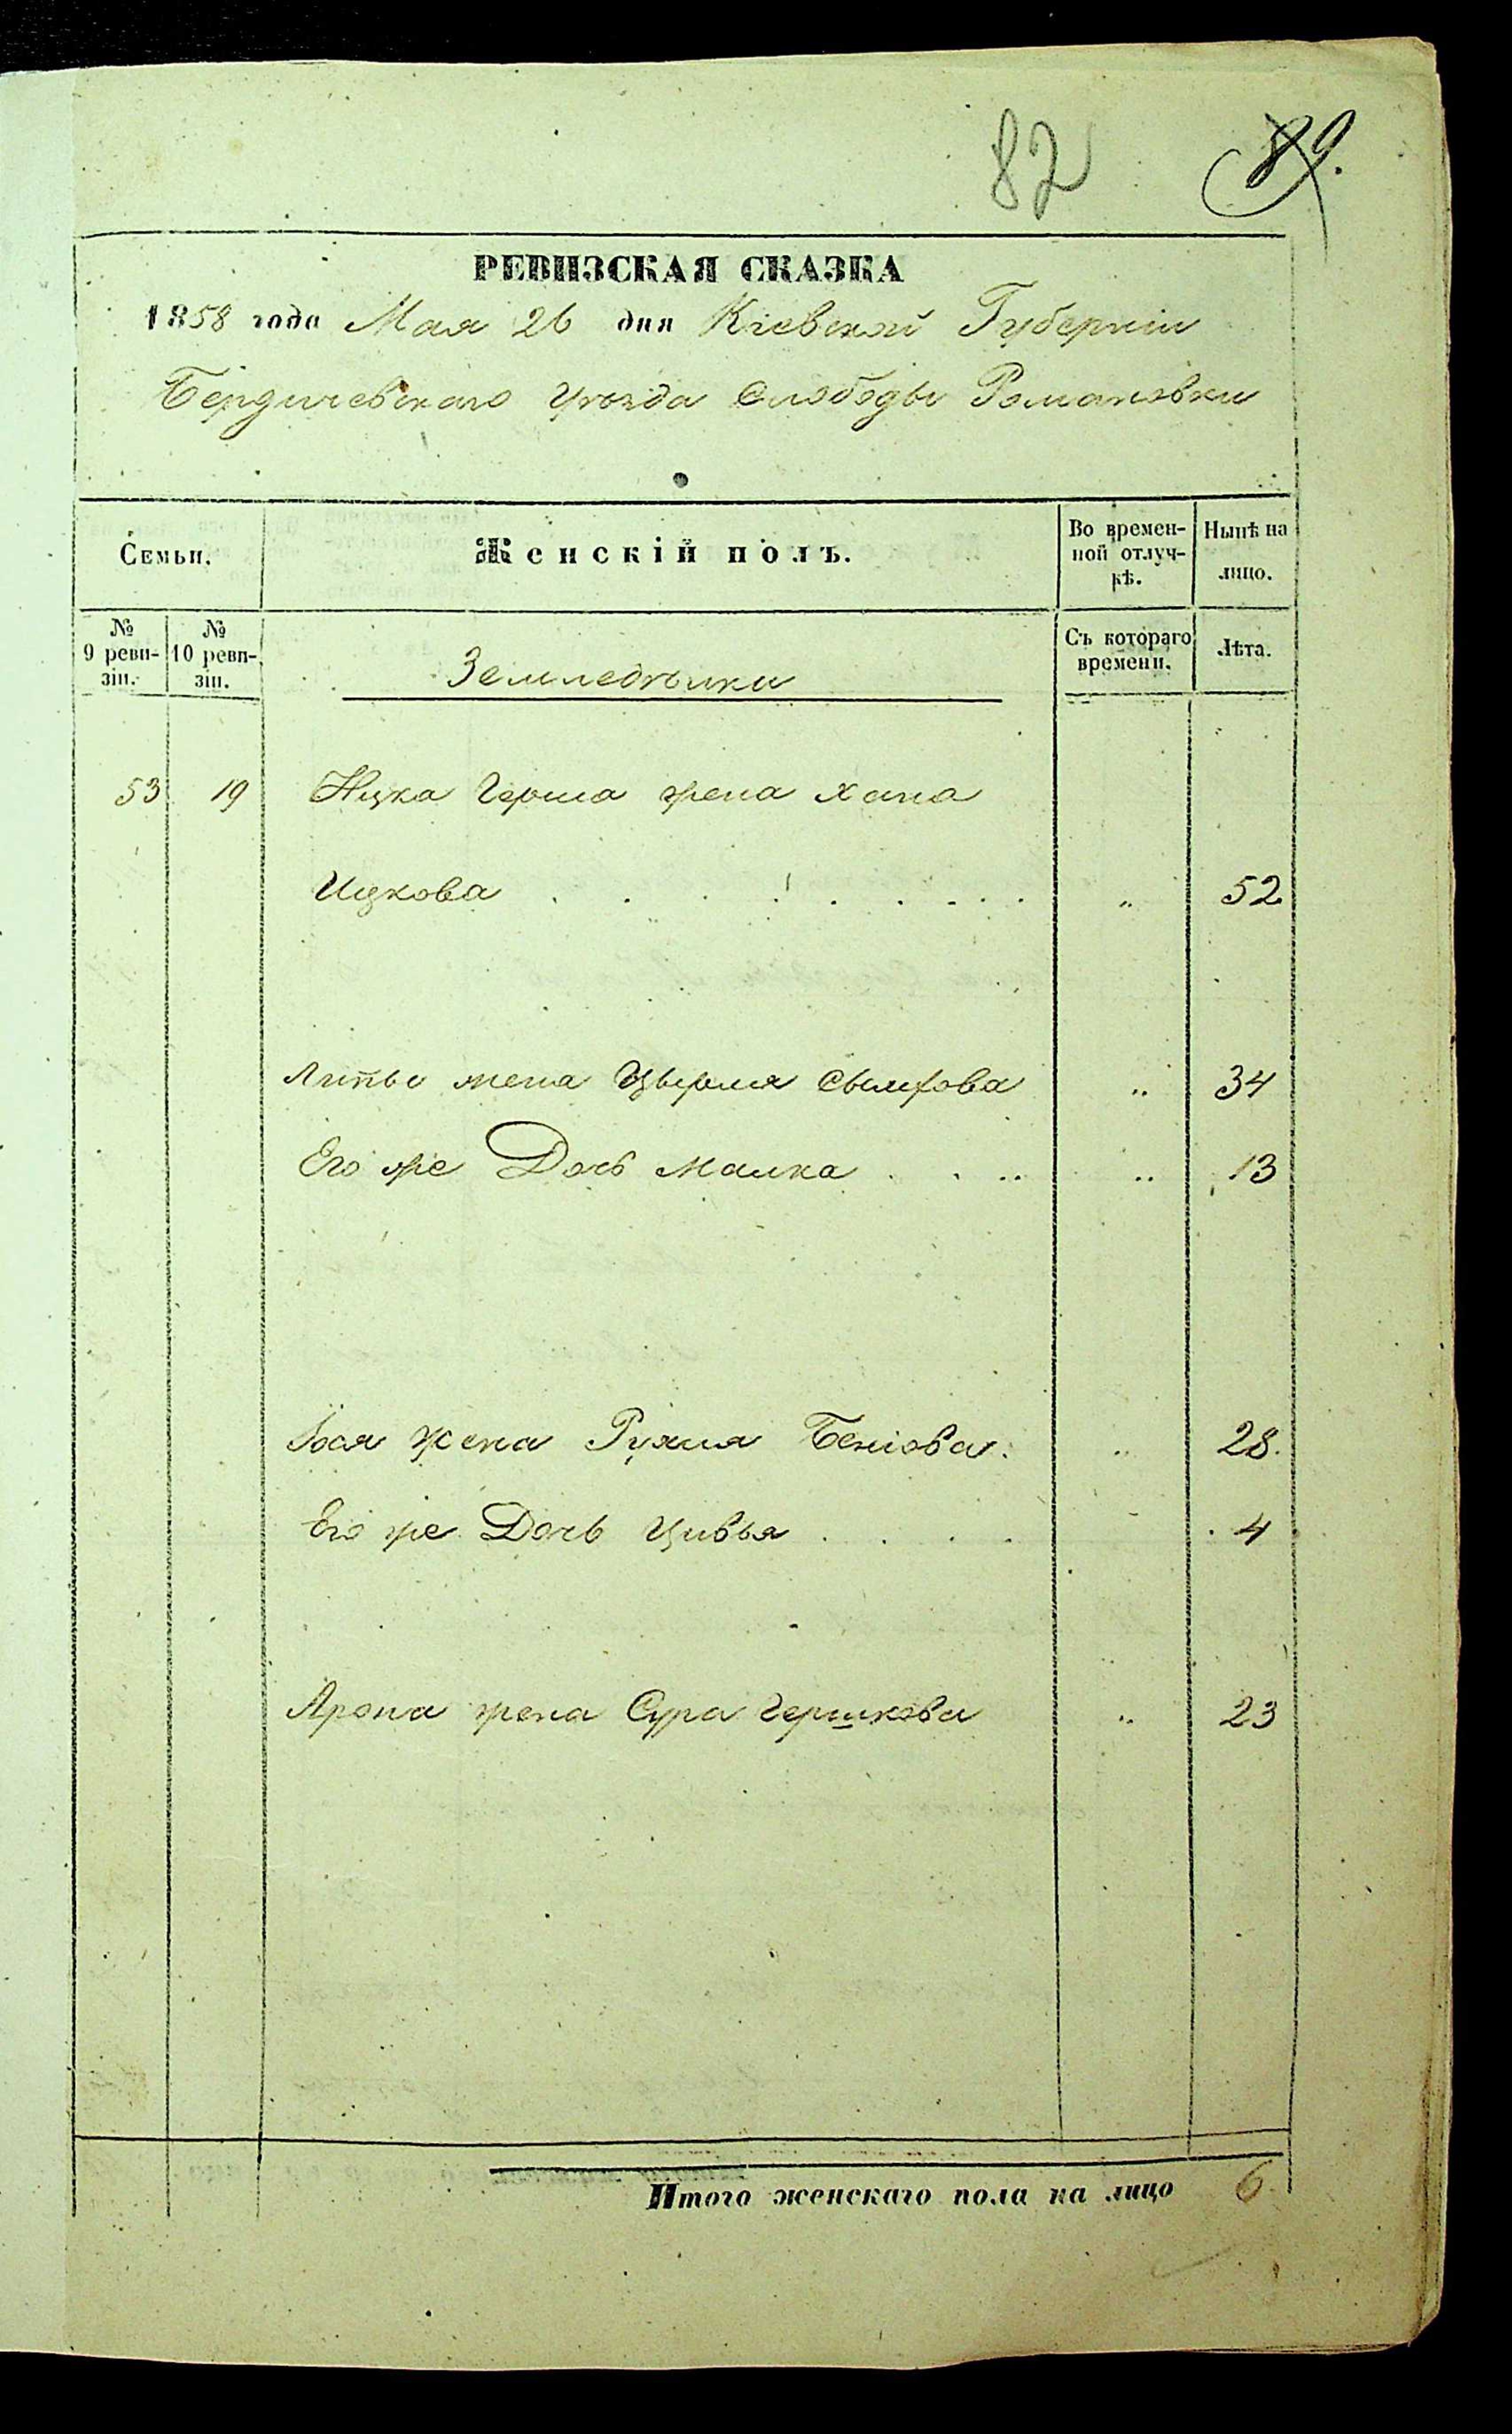 82 89.
РЕВИЗСКАЯ СКАЗКА
1858 года Мая 26 дня Кіевской Губерніи
Бердичевскаго Уѣзда Слободы Романовки
Семьи.
Женскій полъ.
Во времен-
ной отлуч-
кѣ.
Нынѣ на
лицо.
№
9 реви-
зіи.
№
10 реви-
зіи.
Земледѣльки
Съ котораго
времени.
Лѣта.
53 19 Ицка Герша жена Хана
Ицкова . . . . . . . . . „ 52
Липы жена „ 34
Его же Дочь Малка . . .. „ 13
жена Рухля Беніова. „ 28.
Его же Дочь Цивья . . . . 4
Арона жена Сура Гершкова „ 23
Итого женскаго пола на лицо 6